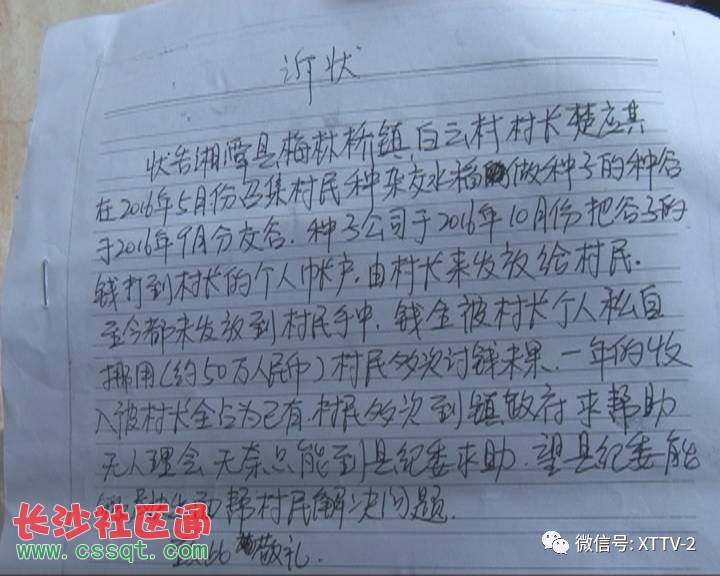 诉状
状告湘潭县梅林桥镇白云村村长楚应其
在2016年5月份召集村民种杂交水稻做种子的种谷
于2016年9月分交谷. 种子公司于2016年10月份把谷子的
钱打到村长的个人帐户,由村长来发放给村民.
至今都未发放到村民手中, 钱全被村长个人私自
挪用(约50万人民币)村民多次讨钱未果、一年的收
入被村长全占为己有.村民多次到镇政府求帮助
无人理会 无奈只能到县纪委求助. 望县纪委能
帮村民解决问题.
至此 敬礼.
长沙社区通
www.cssqt.com
微信号: XTTV-2